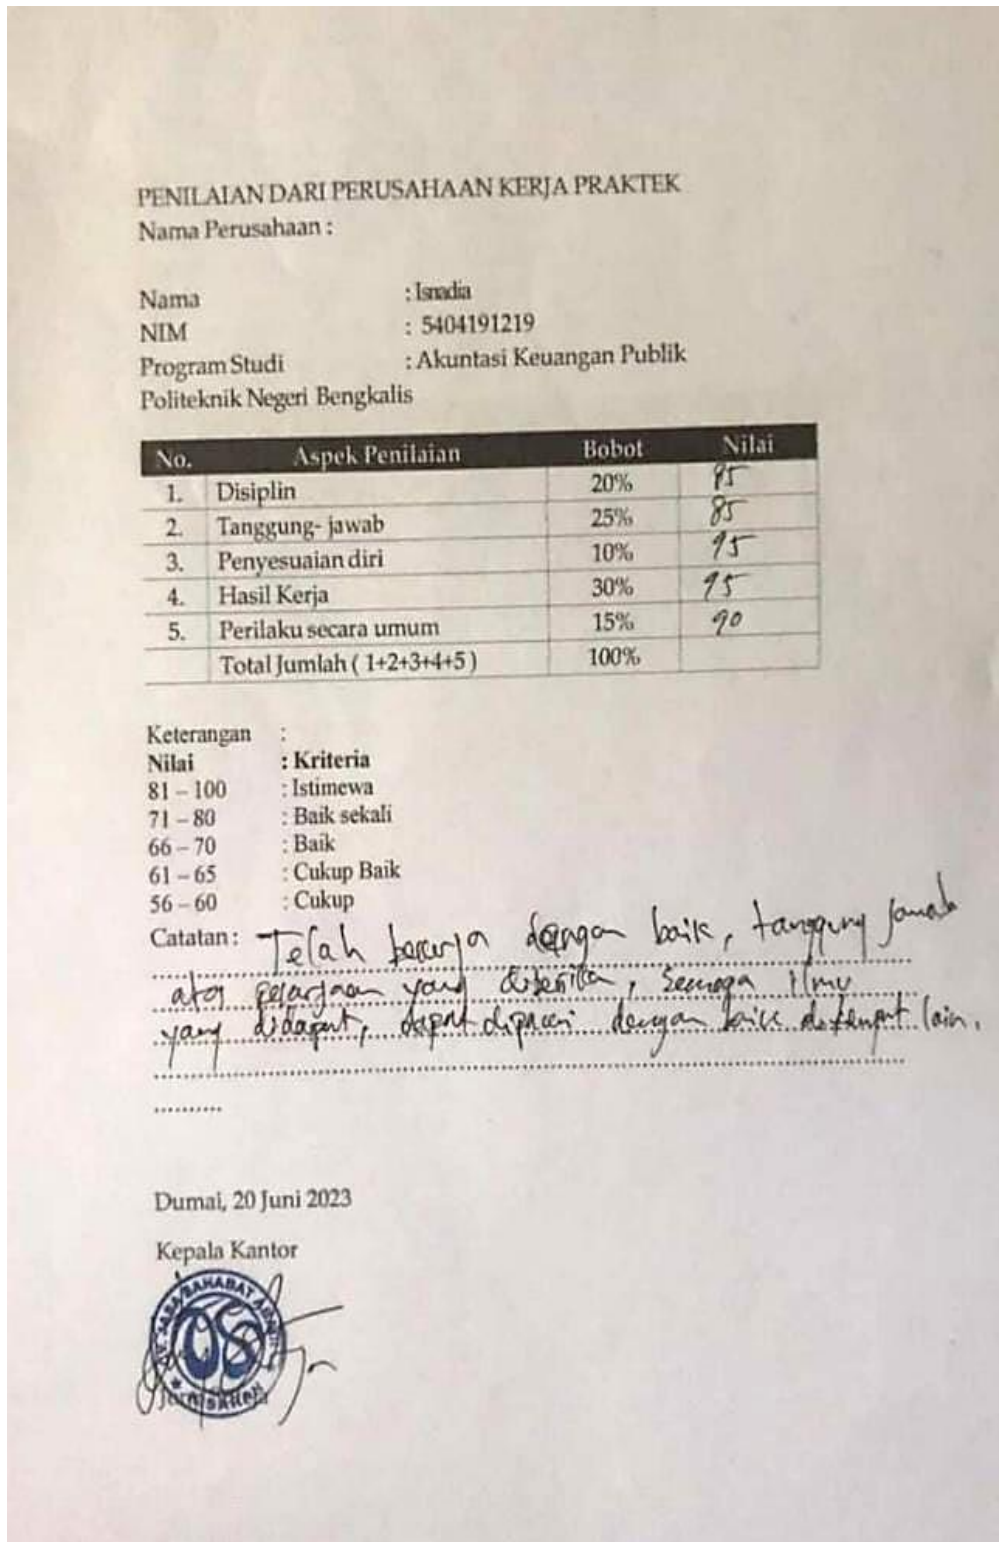 PENILAIAN DARI PERUSAHAAN KERJA PRAKTEK
Nama Perusahaan :
Nama : Isnadia
NIM : 5404191219
Program Studi : Akuntasi Keuangan Publik
Politeknik Negeri Bengkalis
No. Aspek Penilaian Bobot Nilai
1. Disiplin 20% 85
2. Tanggung- jawab 25% 85
3. Penyesuaian diri 10% 95
4. Hasil Kerja 30% 95
5. Perilaku secara umum 15% 90
Total Jumlah ( 1+2+3+4+5 ) 100%
Keterangan :
Nilai : Kriteria
81 – 100 : Istimewa
71 – 80 : Baik sekali
66 – 70 : Baik
61 – 65 : Cukup Baik
56 – 60 : Cukup
Catatan : Telah bekerja dengan baik, tanggung jawab
atas pekerjaan yang diberikan, semoga ilmu
yang didapat, dapat dipakai dengan baik ditempat lain.
Dumai, 20 Juni 2023
Kepala Kantor
SAHABAT
OS